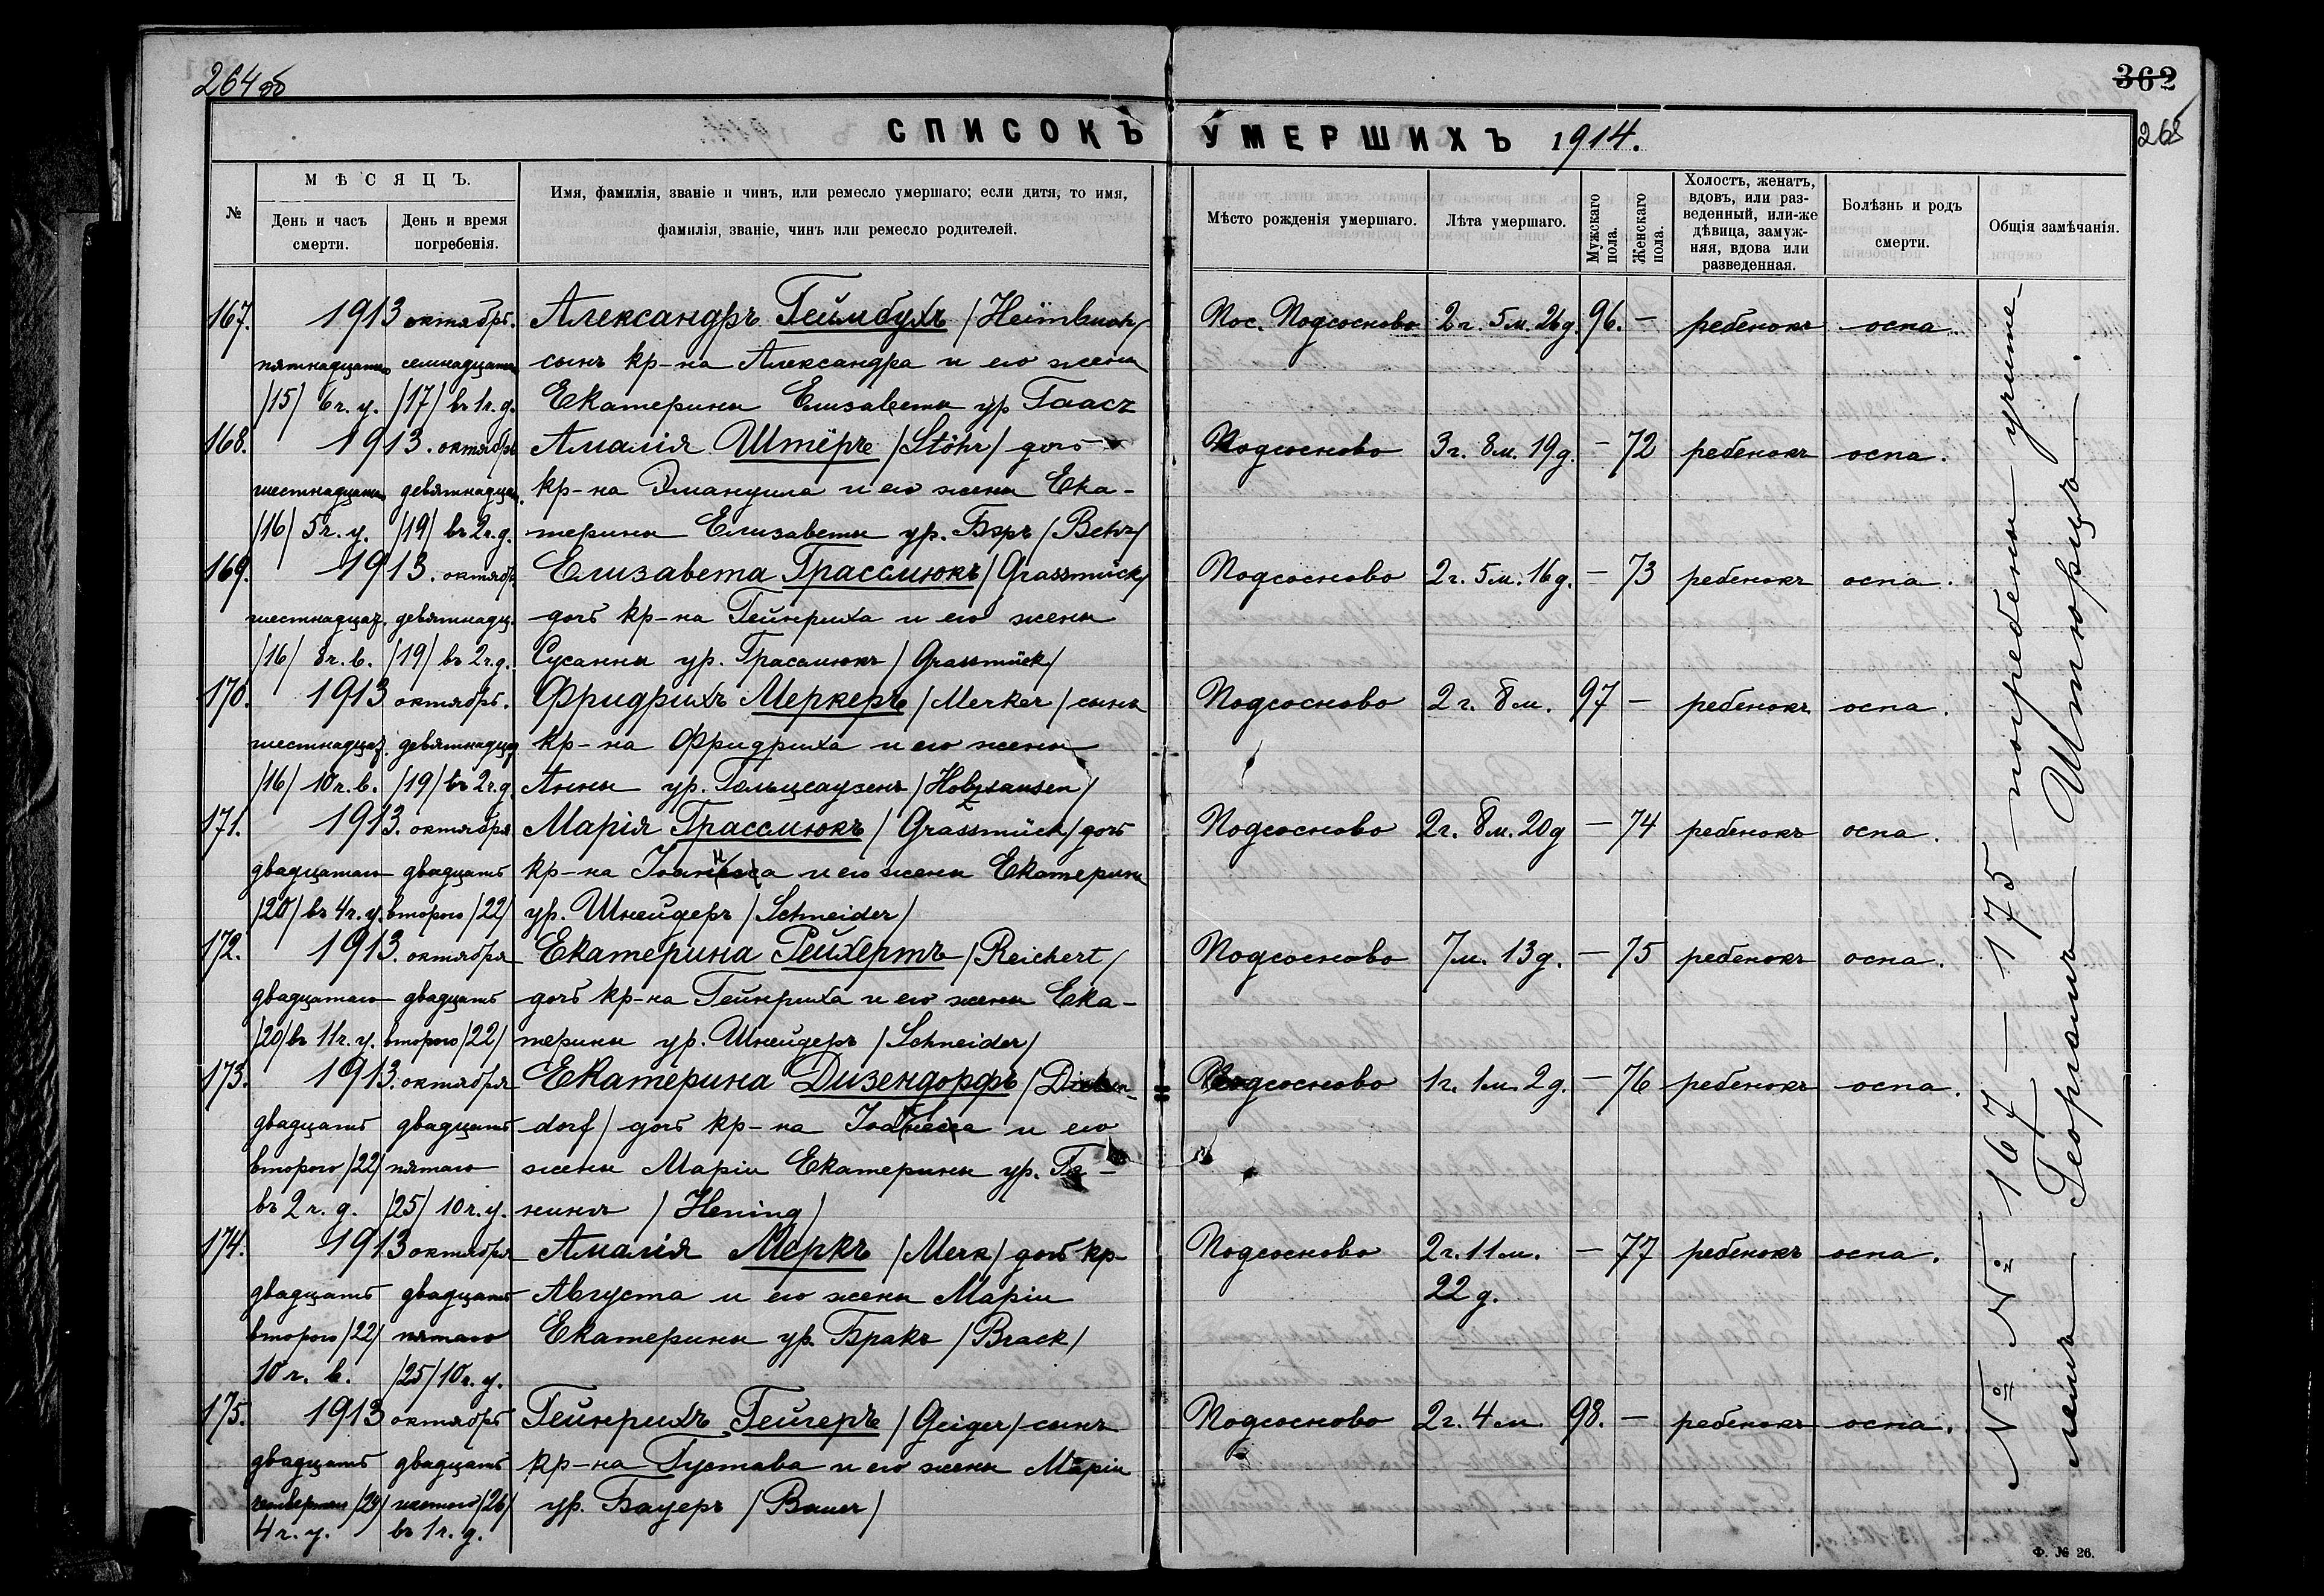 264 об
362
265
СПИСОКЪ УМЕРШИХЪ 1914.
№
МѢСЯЦЪ.
День и часъ смерти.
День и время погребенія.
Имя, фамилія, званіе и чинъ, или ремесло умершаго; если дитя, то имя, фамилія, званіе, чинъ или ремесло родителей.
Мѣсто рожденія умершаго.
Лѣта умершаго.
Мужскаго пола.
Женскаго пола.
Холостъ, женатъ, вдовъ, или разведенный, или-же дѣвица, замужняя, вдова или разведенная.
Болѣзнь и родъ смерти.
Общія замѣчанія.
167. 1913 октябрь. Александръ Геймбухъ /Heimbuch/ Пос. Подсосново 2г. 5м. 26д. 96. – ребенокъ оспа
пятнадцатаго семнадцатаго сынъ кр-на Александра и его жены
/15/ 6ч. у. /17/ въ 1ч. д. Екатерины Елизаветы ур. Гаасъ
168. 1913. октябрь Амалія Штёръ /Stöhr/ дочь Подсосново 3г. 8м. 19д. – 72 ребенокъ оспа.
шестнадцатаго девятнадцат. кр-на Эмануила и его жены Ека-
/16/ 5ч. у. /19/ въ 2ч. д. терины Елизаветы ур. Бэръ /Behr/
169. 1913. октябрь Елизавета Грассмюкъ /Grassmück/ Подсосново 2г. 5м. 16д. – 73 ребенокъ оспа.
шестнадцат. девятнадц. дочь кр-на Гейнриха и его жены
/16/ 8ч. в. /19/ въ 2ч. д. Сусанны ур. Грассмюкъ /Grassmück/
170. 1913 октябрь. Фридрихъ Меркеръ /Merker/ сынъ Подсосново 2г. 8м. 97 – ребенокъ оспа.
шестнадцат. девятнадцат. кр-на Фридриха и его жены
/16/ 10ч. в. /19/ въ 2ч. д. Анны ур. Гольцгаузенъ /Holzhausen/
171. 1913. октября Марія Грассмюкъ /Grassmück/ дочь Подсосново 2г. 8м. 20д – 74 ребенокъ оспа.
двадцатаго двадцать кр-на Іоанна и его жены Екатерины
/20/ въ 4ч. у. второго /22/ ур. Шнейдеръ /Schneider/
172. 1913. октября Екатерина Рейхертъ /Reichert/ Подсосново 7м. 13д. – 75 ребенокъ оспа.
двадцатаго двадцать дочь кр-на Гейнриха и его жены Ека-
/20/ въ 11ч. у. второго /22/ терины ур. Шнейдеръ /Schneider/
173. 1913. октября Екатерина Дизендорфъ /Diesen- Подсосново 1г. 1м. 2д. – 76 ребенокъ оспа.
двадцать двадцать dorf/ дочь кр-на и его
второго /22/ пятаго жены Маріи Екатерины ур. Ге-
въ 2ч. д. /25/ 10ч. у. нингъ /Hening/
174. 1913 октября Амалія Меркъ /Merk/ дочь кр- Подсосново 2г. 11м. – 77 ребенокъ оспа.
двадцать двадцать Августа и его жены Маріи 22д.
второго /22/ пятаго Екатерины ур. Бракъ /Brack/
10ч. в. /25/ 10ч. у.
175. 1913 октябрь Гейнрихъ Гейгеръ /Geiger/ сынъ Подсосново 2г. 4м 98. – ребенокъ оспа.
двадцать двадцать кр-на Густава и его жены Маріи
четвертаго /24/ шестого /26/ ур. Бауеръ /Bauer/
4ч. у. въ 1ч. д.
№ № 167 – 175 погребены учите-
лемъ Георгомъ
Ф. № 26.